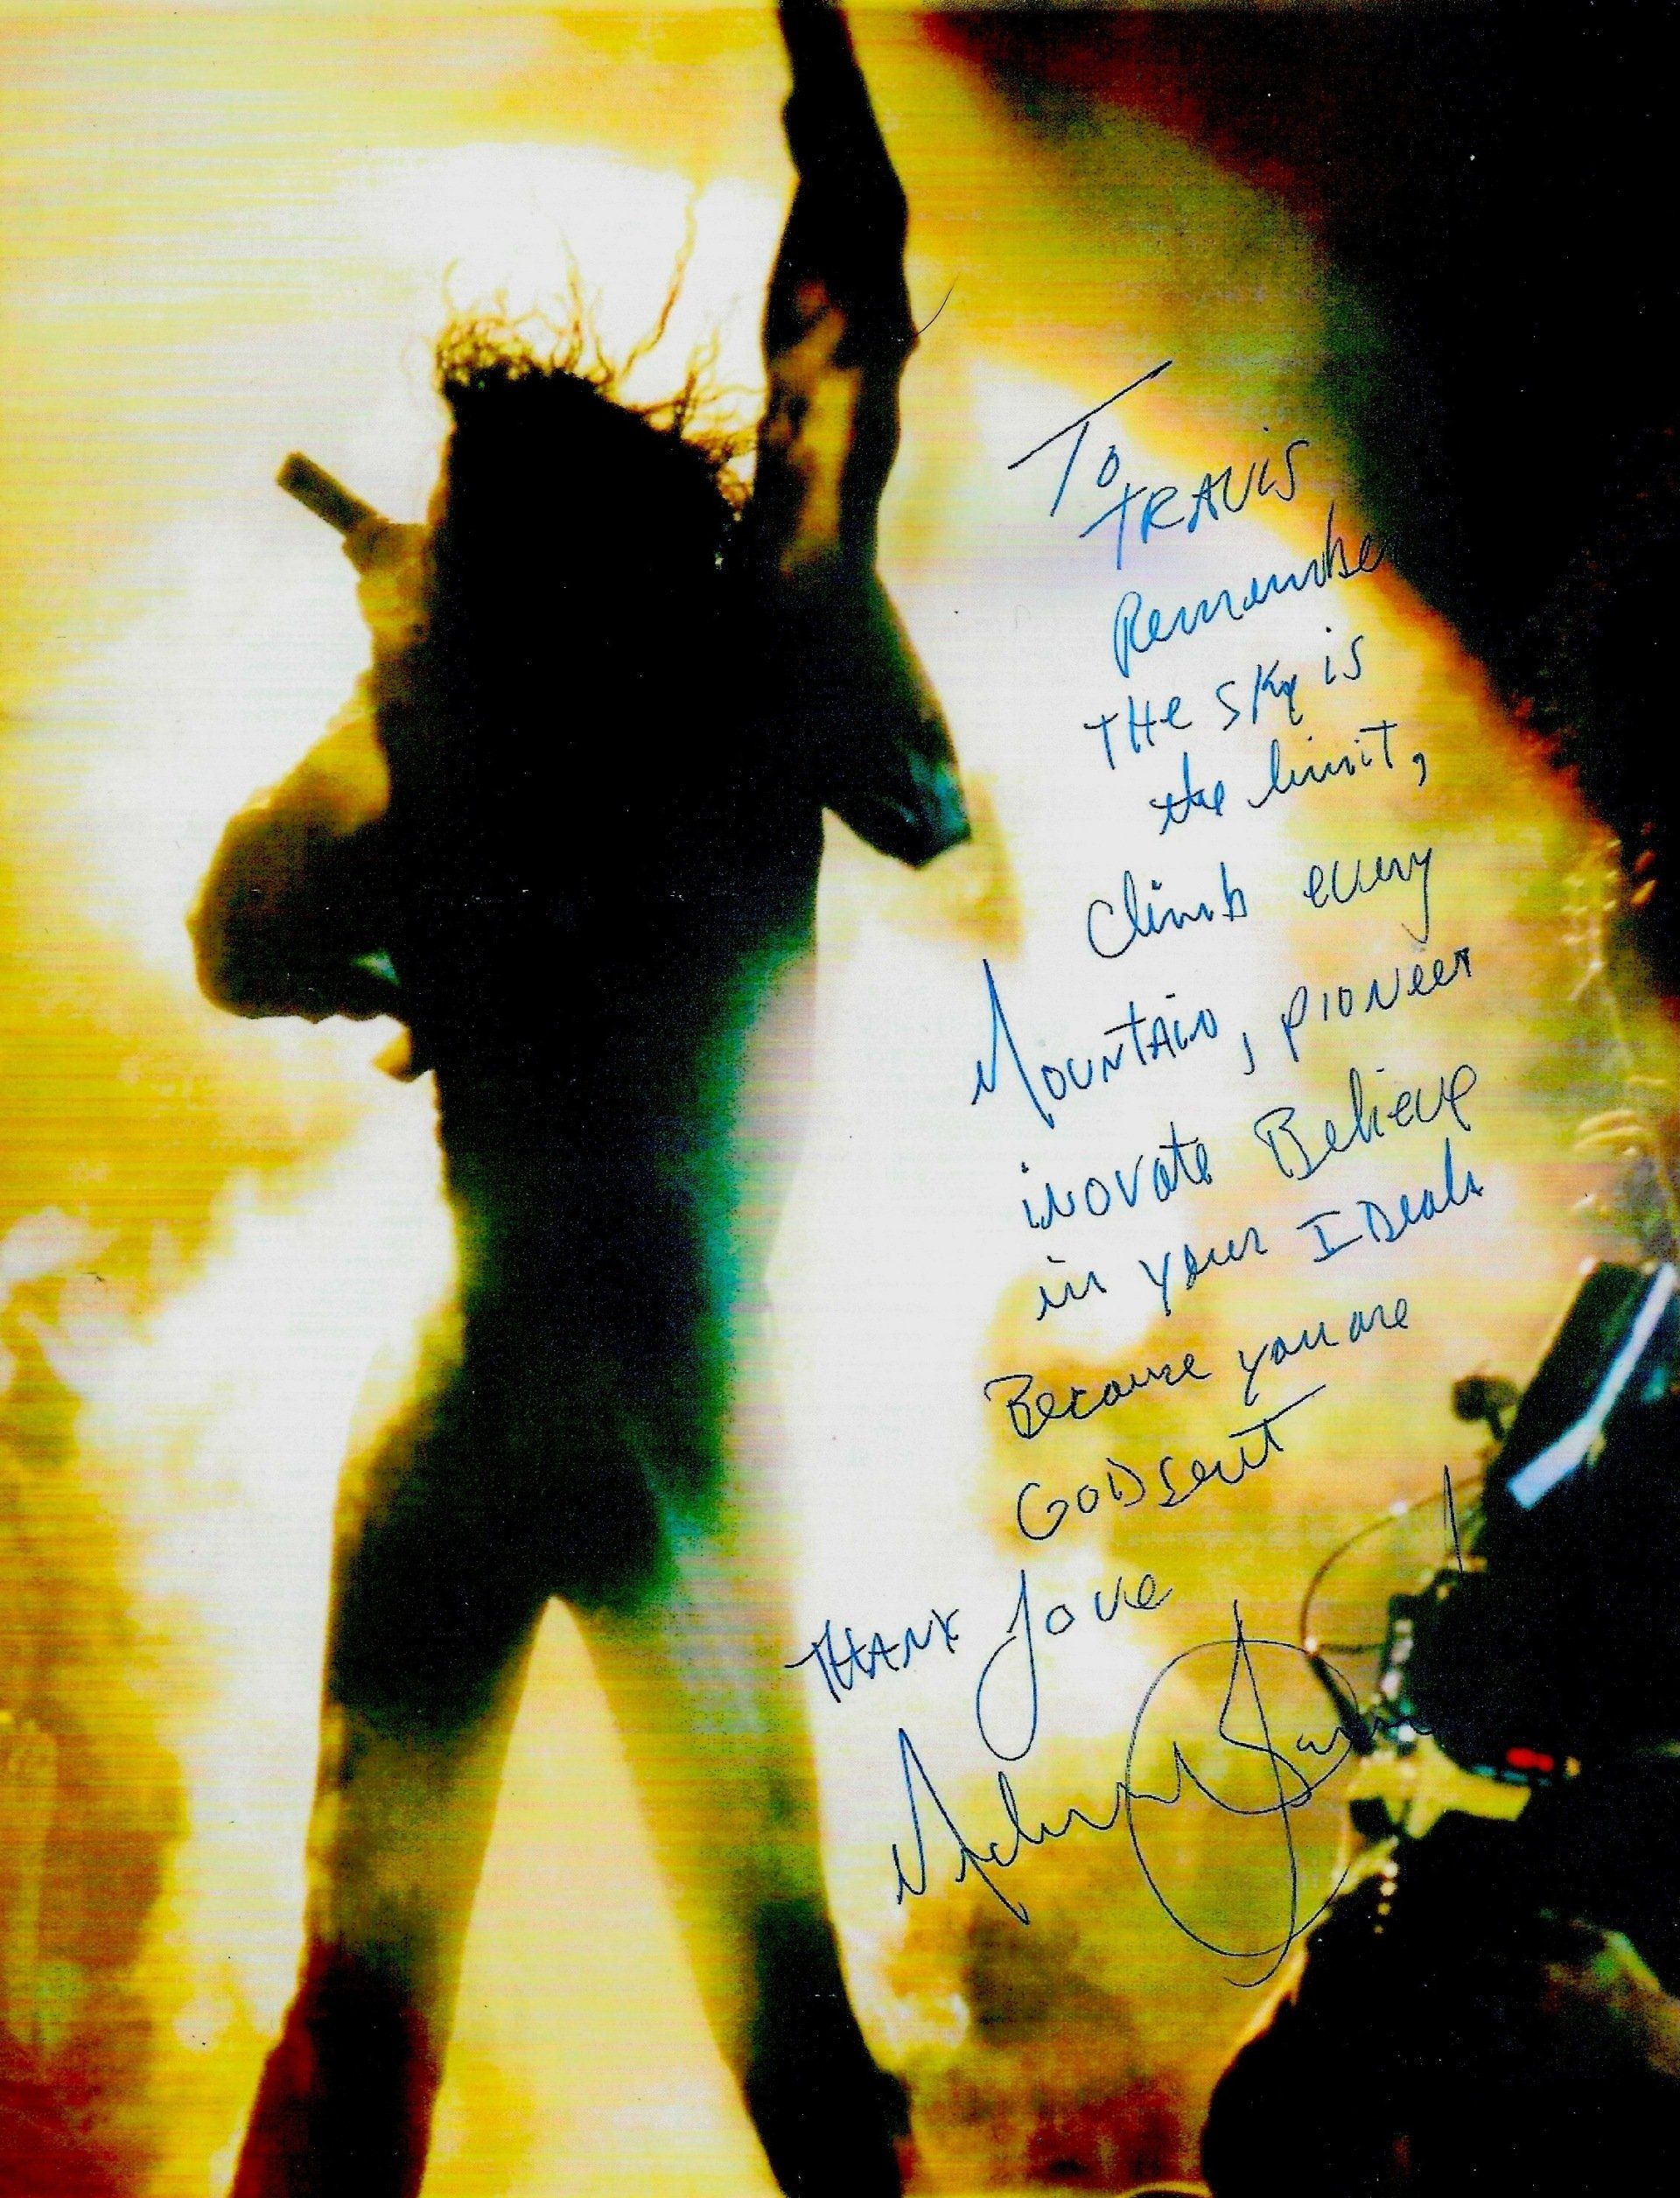 To
TRAVIS
Remember
THe sky is
the limit,
Climb every
MOUNTAIN, pioneer
inovate Believe
in your IDeals
Because you are
GODSent
THANX Love